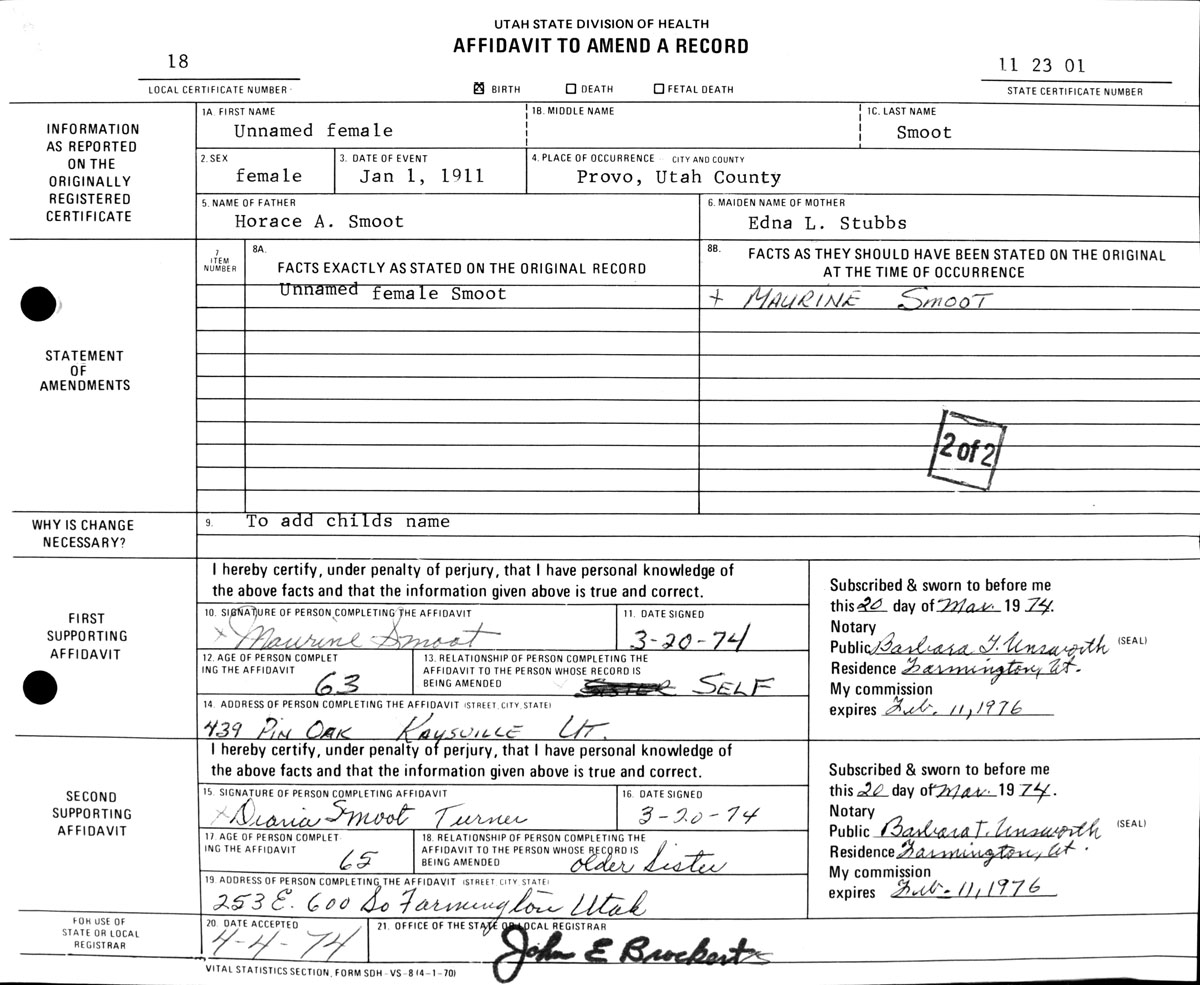 UTAH STATE DIVISION OF HEALTH
AFFIDAVIT TO AMEND A RECORD
18
LOCAL CERTIFICATE NUMBER
☒ BIRTH ☐ DEATH ☐ FETAL DEATH
11 23 01
STATE CERTIFICATE NUMBER
INFORMATION
AS REPORTED
ON THE
ORIGINALLY
REGISTERED
CERTIFICATE
1A FIRST NAME
Unnamed female
1B. MIDDLE NAME
1C. LAST NAME
Smoot
2. SEX
female
3. DATE OF EVENT
Jan 1, 1911
4. PLACE OF OCCURRENCE - CITY AND COUNTY
Provo, Utah County
5. NAME OF FATHER
Horace A. Smoot
6. MAIDEN NAME OF MOTHER
Edna L. Stubbs
STATEMENT
OF
AMENDMENTS
7
ITEM
NUMBER
8A.
FACTS EXACTLY AS STATED ON THE ORIGINAL RECORD
8B.
FACTS AS THEY SHOULD HAVE BEEN STATED ON THE ORIGINAL
AT THE TIME OF OCCURRENCE
Unnamed female Smoot
+ MAURINE SMOOT
2 of 2
WHY IS CHANGE
NECESSARY?
9. To add childs name
FIRST
SUPPORTING
AFFIDAVIT
I hereby certify, under penalty of perjury, that I have personal knowledge of
the above facts and that the information given above is true and correct.
10. SIGNATURE OF PERSON COMPLETING THE AFFIDAVIT
x Maurine Smoot
11. DATE SIGNED
3-20-74
12. AGE OF PERSON COMPLET
ING THE AFFIDAVIT
63
13. RELATIONSHIP OF PERSON COMPLETING THE
AFFIDAVIT TO THE PERSON WHOSE RECORD IS
BEING AMENDED
SISTER SELF
14. ADDRESS OF PERSON COMPLETING THE AFFIDAVIT (STREET, CITY, STATE)
439 PIN OAK KAYSVILLE UT.
Subscribed & sworn to before me
this 20 day of Mar. 1974.
Notary
Public Barbara T. Unsworth (SEAL)
Residence Farmington, Ut.
My commission
expires Feb. 11, 1976
SECOND
SUPPORTING
AFFIDAVIT
I hereby certify, under penalty of perjury, that I have personal knowledge of
the above facts and that the information given above is true and correct.
15. SIGNATURE OF PERSON COMPLETING AFFIDAVIT
x Smoot Turner
16. DATE SIGNED
3-20-74
17. AGE OF PERSON COMPLET
ING THE AFFIDAVIT
65
18. RELATIONSHIP OF PERSON COMPLETING THE
AFFIDAVIT TO THE PERSON WHOSE RECORD IS
BEING AMENDED
older Sister
19. ADDRESS OF PERSON COMPLETING THE AFFIDAVIT (STREET, CITY STATE)
253 E. 600 So Farmington Utah
Subscribed & sworn to before me
this 20 day of Mar. 1974.
Notary
Public Barbara T. Unsworth (SEAL)
Residence Farmington, Ut.
My commission
expires Feb. 11, 1976
FOR USE OF
STATE OR LOCAL
REGISTRAR
20. DATE ACCEPTED
4-4-74
21. OFFICE OF THE STATE OR LOCAL REGISTRAR
John E Brockert
VITAL STATISTICS SECTION, FORM SDH-VS-8 (4-1-70)